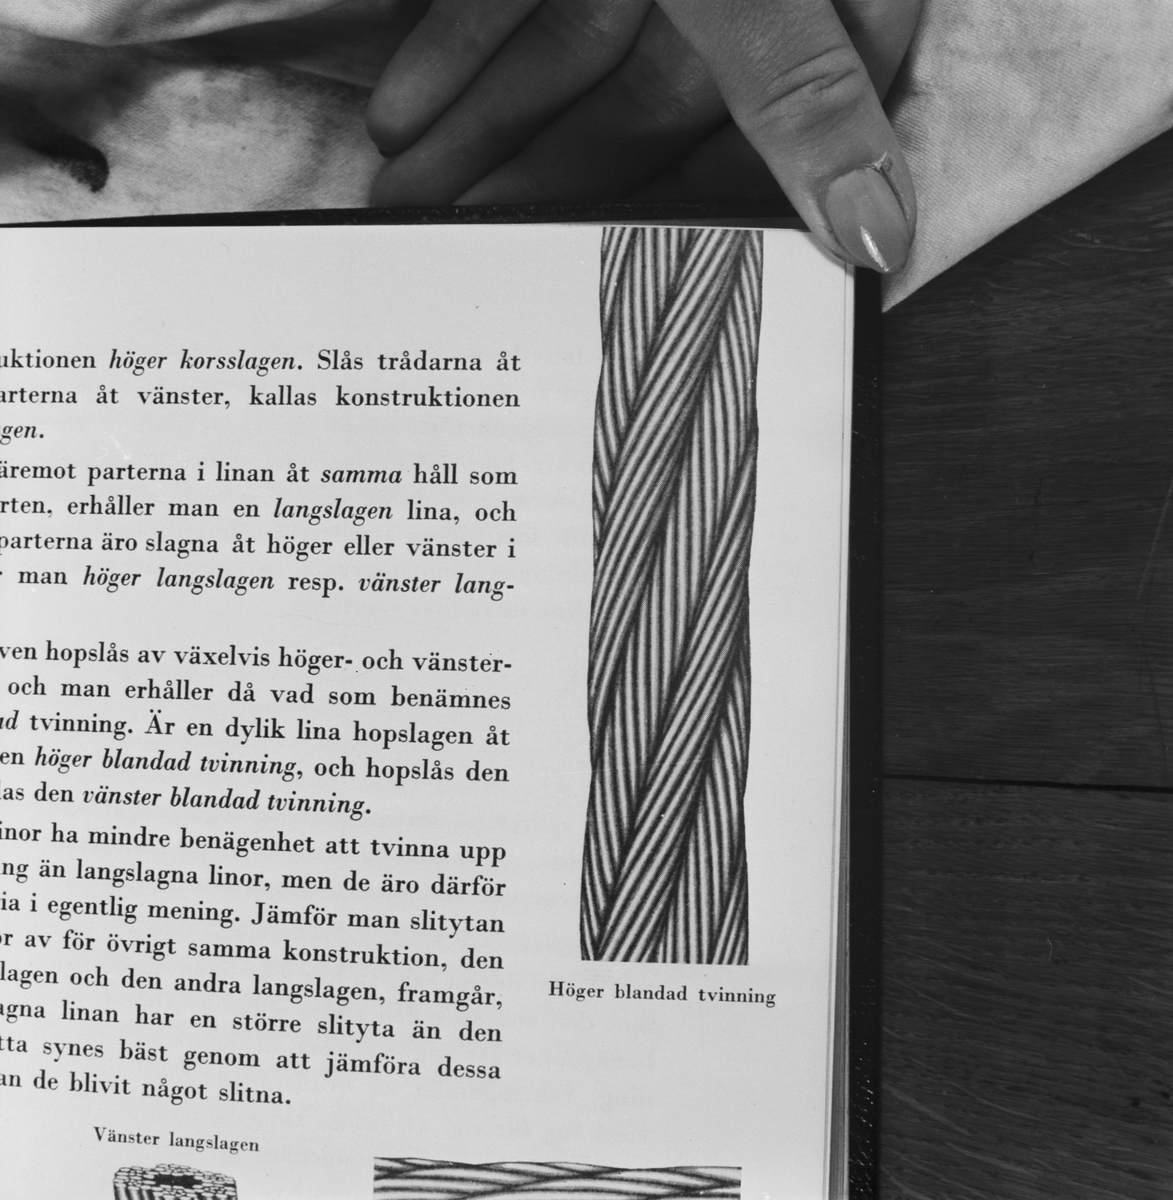 höger korsslagen. Slås trådarna åt
åt vänster, kallas konstruktionen
gen.
äremot parterna i linan åt samma håll som
rten, erhåller man en langslagen lina, och
parterna äro slagna åt höger eller vänster i
man höger langslagen resp. vänster lang-
ven hopslås av växelvis höger- och vänster-
och man erhåller då vad som benämnes
tvinning. Är en dylik lina hopslagen åt
en höger blandad tvinning, och hopslås den
as den vänster blandad tvinning.
inor ha mindre benägenhet att tvinna upp
ng än langslagna linor, men de äro därför
ia i egentlig mening. Jämför man slitytan
or av för övrigt samma konstruktion, den
lagen och den andra langslagen, framgår,
agna linan har en större slityta än den
tta synes bäst genom att jämföra dessa
an de blivit något slitna.
Höger blandad tvinning
Vänster langslagen